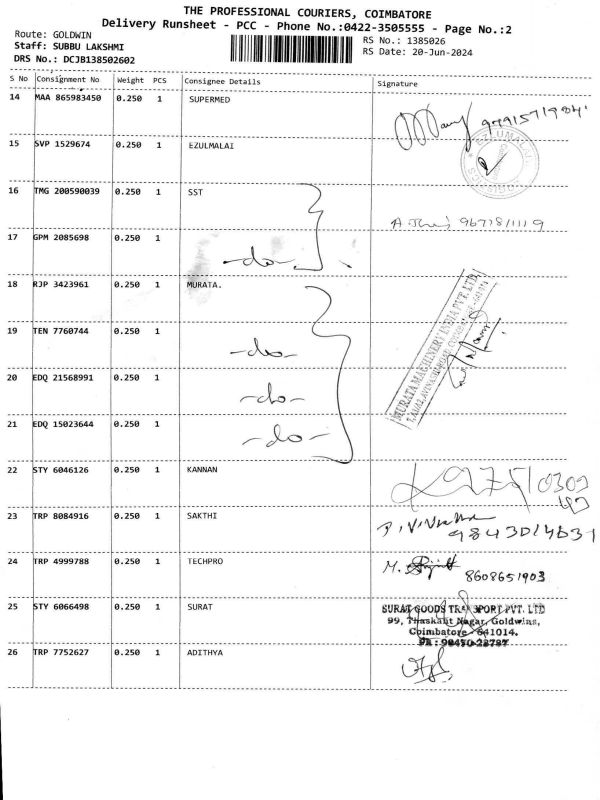 THE PROFESSIONAL COURIERS, COIMBATORE
Delivery Runsheet - PCC - Phone No.:0422-3505555 - Page No.:2
Route: GOLDWIN
Staff: SUBBU LAKSHMI
DRS No.: DCJB138502602
RS No.: 1385026
RS Date: 20-Jun-2024
S No Consignment No Weight PCS Consignee Details Signature
14 MAA 865983450 0.250 1 SUPERMED
15 SVP 1529674 0.250 1 EZULMALAI
16 TMG 200590039 0.250 1 SST
17 GPM 2085698 0.250 1 -do-
18 RJP 3423961 0.250 1 MURATA.
MURATA MACHINERY INDIA PVT. LTD.
19 TEN 7760744 0.250 1 -do-
20 EDQ 21568991 0.250 1 -do-
21 EDQ 15023644 0.250 1 -do-
22 STY 6046126 0.250 1 KANNAN
23 TRP 8084916 0.250 1 SAKTHI
24 TRP 4999788 0.250 1 TECHPRO 8608651903
25 STY 6066498 0.250 1 SURAT
SURAT GOODS TRANSPORT PVT. LTD
99, Thaskant Nagar, Goldwins,
Coimbatore - 641014.
26 TRP 7752627 0.250 1 ADITHYA